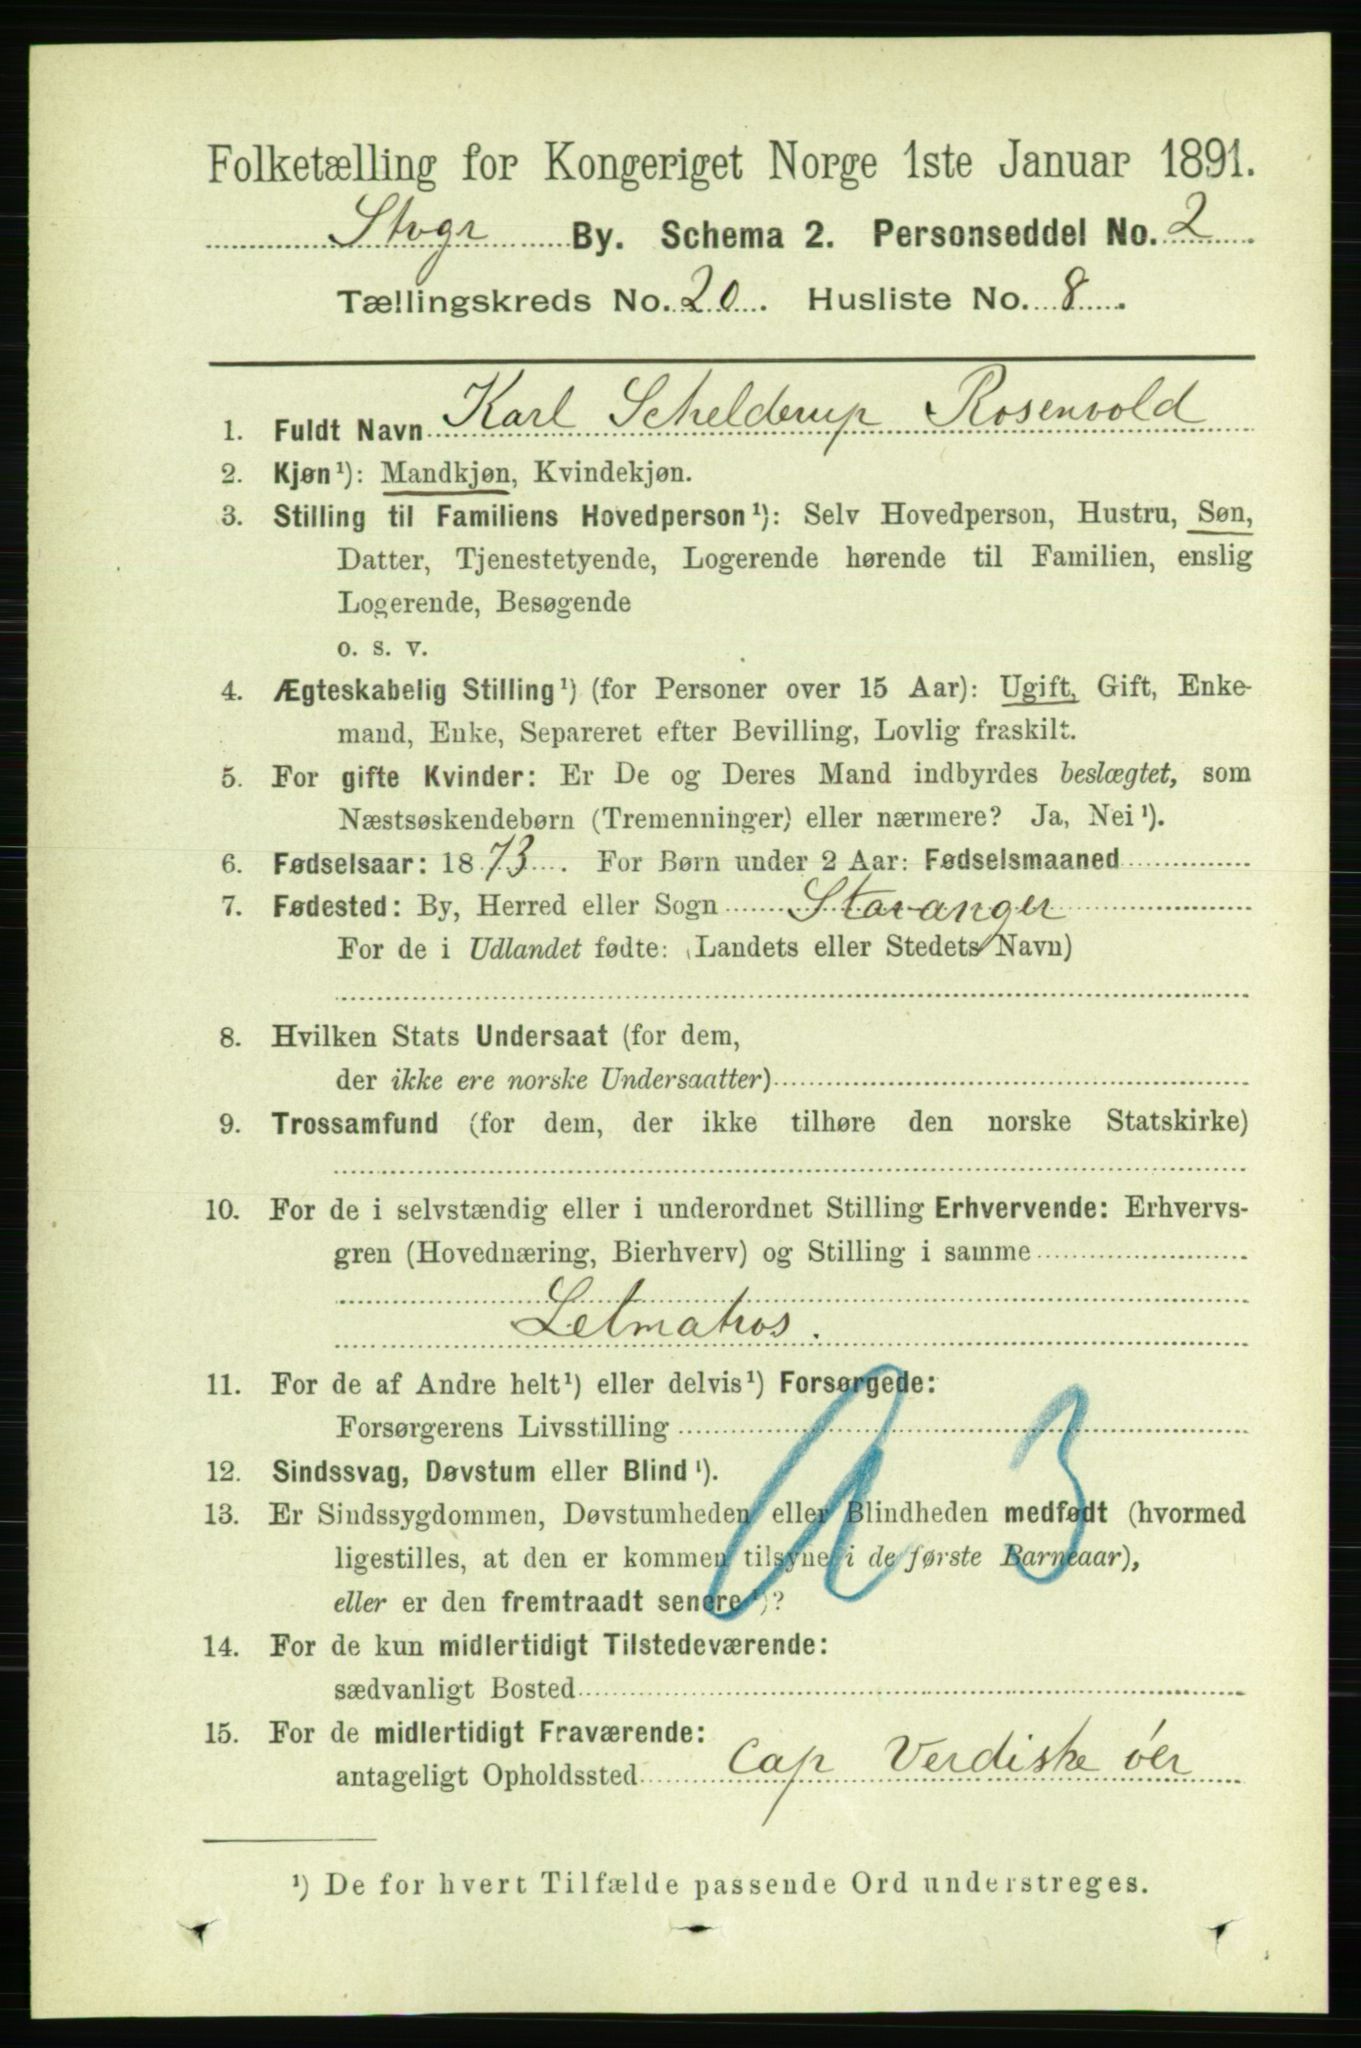 Folketælling for Kongeriget Norge 1ste Januar 1891.
Stvgr By. Schema 2. Personseddel No. 2
Tællingskreds No. 20. Husliste No. 8.
1. Fuldt Navn Karl Schelderup Rosenvold
2. Kjøn¹): Mandkjøn, Kvindekjøn.
3. Stilling til Familiens Hovedperson¹): Selv Hovedperson, Hustru, Søn,
Datter, Tjenestetyende, Logerende hørende til Familien, enslig
Logerende, Besøgende
o. s. v.
4. Ægteskabelig Stilling¹) (for Personer over 15 Aar): Ugift, Gift, Enke-
mand, Enke, Separeret efter Bevilling, Lovlig fraskilt.
5. For gifte Kvinder: Er De og Deres Mand indbyrdes beslægtet, som
Næstsøskendebørn (Tremenninger) eller nærmere? Ja, Nei¹).
6. Fødselsaar: 1873. For Børn under 2 Aar: Fødselsmaaned
7. Fødested: By, Herred eller Sogn Stavanger
For de i Udlandet fødte: (Landets eller Stedets Navn)
8. Hvilken Stats Undersaat (for dem,
der ikke ere norske Undersaatter)
9. Trossamfund (for dem, der ikke tilhøre den norske Statskirke)
10. For de i selvstændig eller i underordnet Stilling Erhvervende: Erhvervs-
gren (Hovednæring, Bierhverv) og Stilling i samme
Letmatros.
11. For de af Andre helt¹) eller delvis¹) Forsørgede:
Forsørgerens Livsstilling
12. Sindssvag, Døvstum eller Blind¹).
13. Er Sindssygdommen, Døvstumheden eller Blindheden medfødt (hvormed
ligestilles, at den er kommen tilsyne i de første Barneaar),
eller er den fremtraadt senere¹)?
14. For de kun midlertidigt Tilstedeværende:
sædvanligt Bosted
15. For de midlertidigt Fraværende:
antageligt Opholdssted Cap Verdiske öer
¹) De for hvert Tilfælde passende Ord understreges.